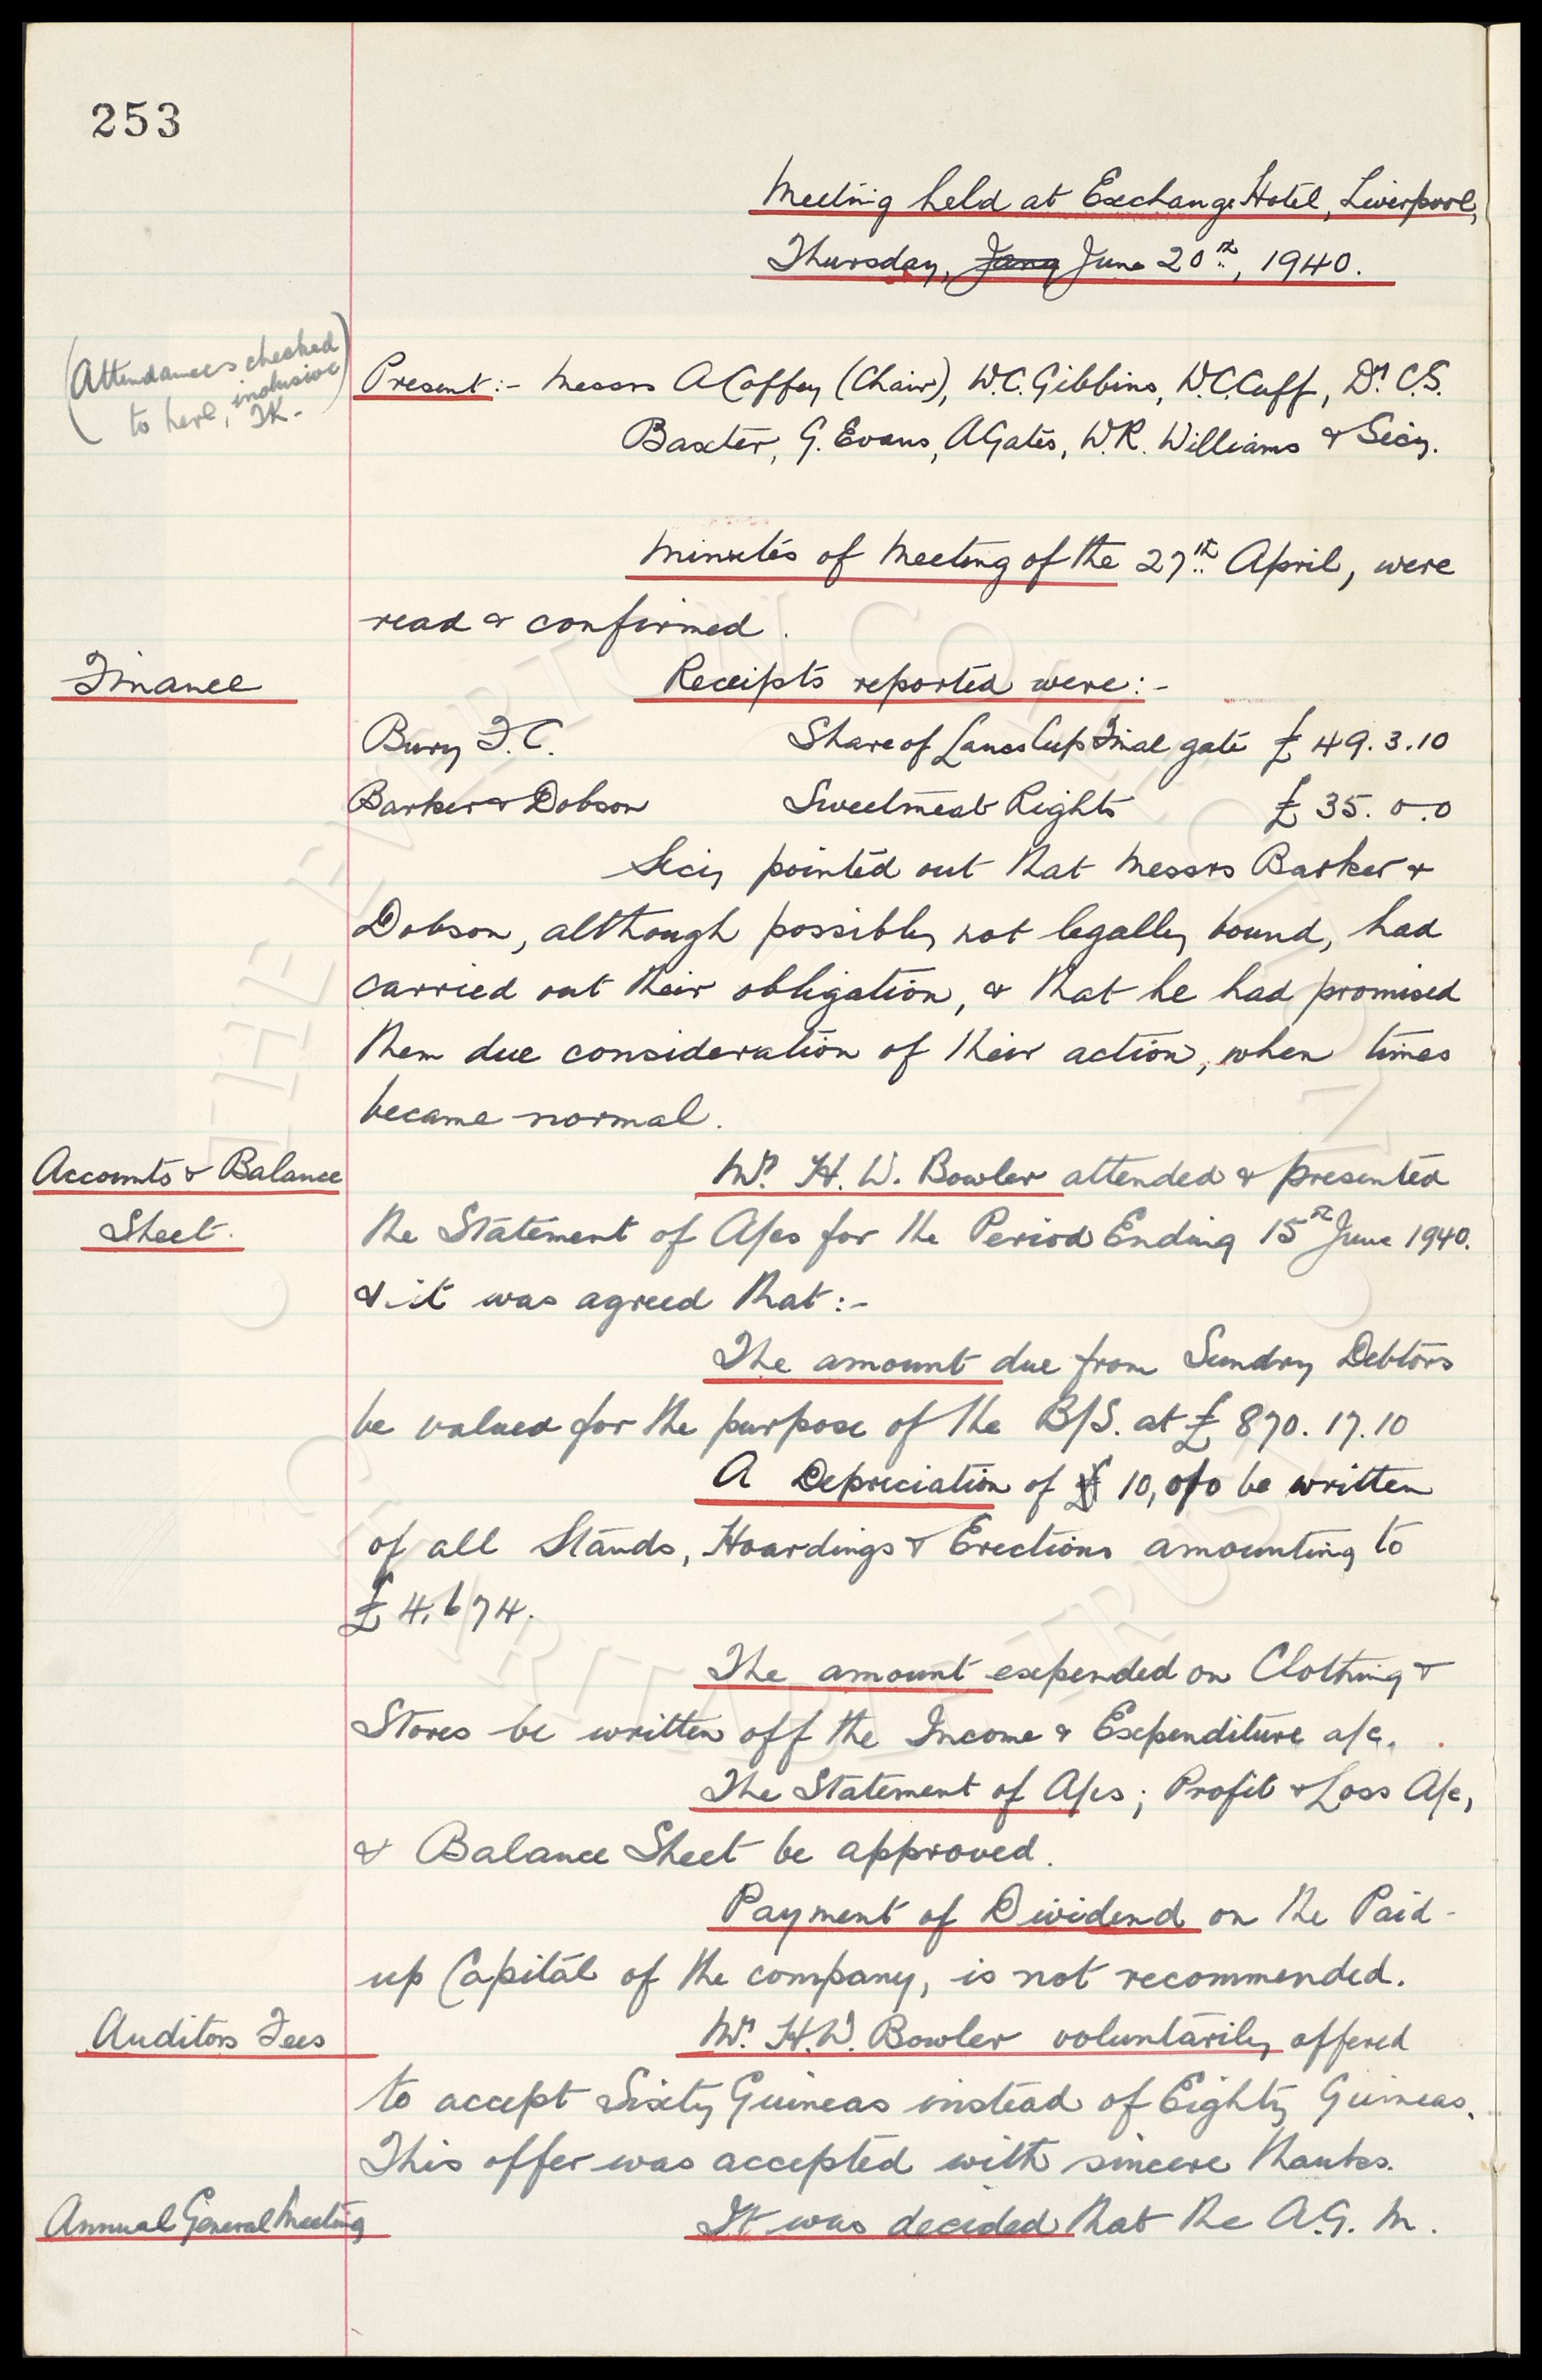 253
Meeting held at Exchange Hotel, Liverpool,
Thursday, Jany June 20th, 1940.
(Attendances checked
to here, inclusive
TK-
Present:- Messrs A Coffey (Chair), W.C. Gibbins, W.C. Cuff, Dr C.S.
Baxter, G. Evans, A Gates, W.R. Williams & Secy.
Minutes of Meeting of the 27th April, were
read & confirmed.
Finance
Receipts reported were:-
Bury F.C. Share of Lancs Cup Final gate £49.3.10
Barker & Dobson Sweetmeat Rights £35.0.0
Secy pointed out that Messrs Barker &
Dobson, although possibly not legally bound, had
carried out their obligation, & that he had promised
them due consideration of their action, when times
became normal.
Accounts & Balance
Sheet.
Mr. H. W. Bowler attended & presented
the Statement of A/cs for the Period Ending 15th June 1940.
& it was agreed that:-
The amount due from Sundry Debtors
be valued for the purpose of the B/S. at £870.17.10
A Depreciation of £ 10, o/o be written
of all Stands, Hoardings & Erections amounting to
£4,674.
The amount expended on Clothing &
Stores be written off the Income & Expenditure a/c.
The Statement of A/cs; Profit & Loss A/c,
& Balance Sheet be approved.
Payment of Dividend on the Paid-
up Capital of the company, is not recommended.
Auditors Fees
Mr. H.W. Bowler voluntarily offered
to accept Sixty Guineas instead of Eighty Guineas.
This offer was accepted with sincere thanks.
Annual General Meeting
It was decided that the A.G.M.
THE EVERTON COLLECTION CHARITABLE TRUST